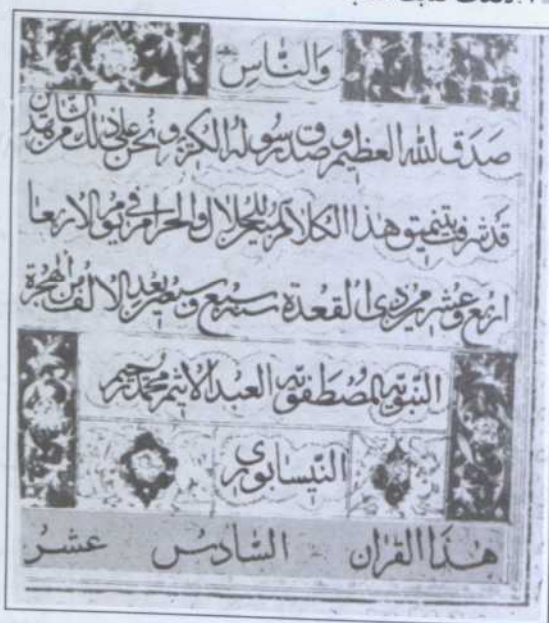 وَالنَّاسِ
صَدَقَ لله العظيم وصدق رسوله الكريم ونحن على ذلك من
قد شرفت بتنميق هذا الكلام المميز للحلال والحرام في يوم الاربعا
اربع وعشر من ذى القعدة سنه سبع وسبعين بعد الالف من الهجرة
النبويه المصطفويه العبد الاثيم محمد رحيم
النيسابورى
هذا القرآن السادس عشر